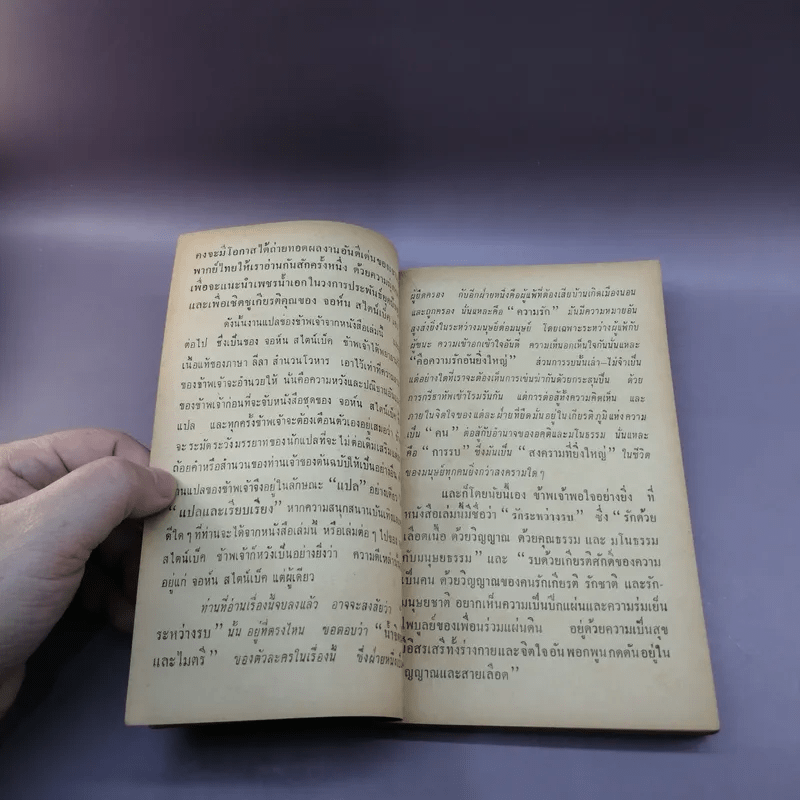 คงจะมีโอกาสได้ถ่ายทอดผลงานอันดีเด่นของ
พากย์ไทยให้เราอ่านกันสักครั้งหนึ่ง ด้วยความ
เพื่อจะแนะนำเพชรน้ำเอกในวงการประพันธ์
และเพื่อเชิดชูเกียรติคุณของ จอห์น สไตน์เบ็ค
ดังนั้นงานแปลของข้าพเจ้าจากหนังสือเล่มนี้
ต่อไป ซึ่งเป็นของ จอห์น สไตน์เบ็ค ข้าพเจ้าได้
เนื้อแท้ของภาษา ลีลา สำนวนโวหาร เอาไว้เท่าที่ความ
ของข้าพเจ้าจะอำนวยให้ นั่นคือความหวังและปณิธาน
ของข้าพเจ้าก่อนที่จะจับหนังสือชุดของ จอห์น สไตน์เบ็ค
แปล และทุกครั้งข้าพเจ้าจะต้องเตือนตัวเองอยู่เสมอว่า
จะระมัดระวังมรรยาทของนักแปลที่จะไม่ต่อเติมเสริม
ถ้อยคำหรือสำนวนของท่านเจ้าของต้นฉบับให้เป็นอย่างอื่น
งานแปลของข้าพเจ้าจึงอยู่ในลักษณะ “แปล” อย่างเดียว
“แปลและเรียบเรียง” หากความสนุกสนานบันเทิง
ดีใดๆ ที่ท่านจะได้จากหนังสือเล่มนี้ หรือเล่มต่อๆ ไปของ
สไตน์เบ็ค ข้าพเจ้าก็หวังเป็นอย่างยิ่งว่า ความดีเหล่านั้น
อยู่แก่ จอห์น สไตน์เบ็ค แต่ผู้เดียว
ท่านที่อ่านเรื่องนี้จบลงแล้ว อาจจะสงสัยว่า
ระหว่างรบ” นั้น อยู่ที่ตรงไหน ขอตอบว่า
และไมตรี” ของตัวละครในเรื่องนี้ ซึ่งฝ่ายหนึ่ง
ผู้ยึดครอง กับอีกฝ่ายหนึ่งคือผู้แพ้ที่ต้องเสียบ้านเกิดเมืองนอน
และถูกครอง นั่นแหละคือ “ความรัก” มันมีความหมายอัน
สูงส่งยิ่งในระหว่างมนุษย์ต่อมนุษย์ โดยเฉพาะระหว่างผู้แพ้กับ
ผู้ชนะ ความเข้าอกเข้าใจอันดี ความเห็นอกเห็นใจกันนั่นแหละ
“คือความรักอันยิ่งใหญ่” ส่วนการรบนั้นเล่า–ไม่จำเป็น
แต่อย่างใดที่เราจะต้องเห็นการเข่นฆ่ากันด้วยกระสุนปืน ด้วย
การกรีธาทัพเข้าโรมรันกัน แต่การต่อสู้ทั้งความคิดเห็น และ
ภายในจิตใจของแต่ละฝ่ายที่ยึดมั่นอยู่ในเกียรติภูมิแห่งความ
เป็น “คน” ต่อสู้กับอำนาจของอคติและมโนธรรม นั่นแหละ
คือ “การรบ” ซึ่งมันเป็น “สงครามที่ยิ่งใหญ่” ในชีวิต
ของมนุษย์ทุกคนยิ่งกว่าสงครามใดๆ
และก็โดยนัยนี้เอง ข้าพเจ้าพอใจอย่างยิ่ง ที่
หนังสือเล่มนี้มีชื่อว่า “รักระหว่างรบ” ซึ่ง “รักด้วย
เลือดเนื้อ ด้วยวิญญาณ ด้วยคุณธรรม และ มโนธรรม
กับมนุษยธรรม” และ “รบด้วยเกียรติศักดิ์ของความ
เป็นคน ด้วยวิญญาณของคนรักเกียรติ รักชาติ และรัก-
มนุษยชาติ อยากเห็นความเป็นปึกแผ่นและความร่มเย็น
ไพบูลย์ของเพื่อนร่วมแผ่นดิน อยู่ด้วยความเป็นสุข
อิสรเสรีทั้งร่างกายและจิตใจอันพอกพูนกดดันอยู่ใน
วิญญาณและสายเลือด”